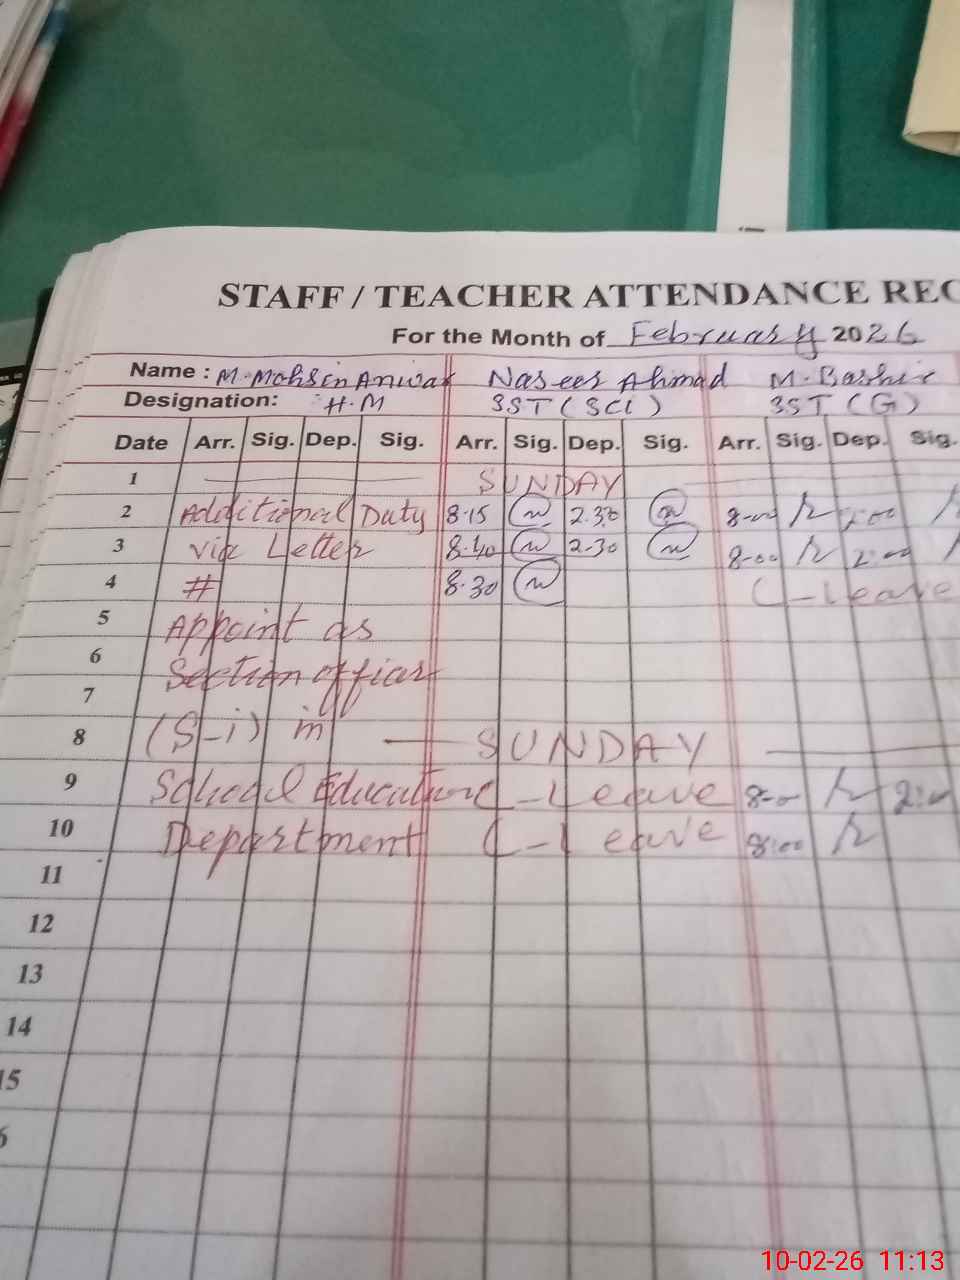 STAFF / TEACHER ATTENDANCE REC
For the Month of February 2026
Name : M. Mohsin Anwar Naseer Ahmad M. Bashir
Designation: H.M SST (SCI) SST (G)
Date Arr. Sig. Dep. Sig. Arr. Sig. Dep. Sig. Arr. Sig. Dep. Sig.
1 SUNDAY
2 Additional Duty 8.15 2.30 8-00 2:00
3 via Letter 8.40 2.30 8-00 2:00
4 # 8.30 C-Leave
5 Appoint as
6 Section officer
7
8 (S-i) in SUNDAY
9 School Education C-Leave 8-00 2:00
10 Department C-Leave 8:00
11
12
13
14
15
6
10-02-26 11:13